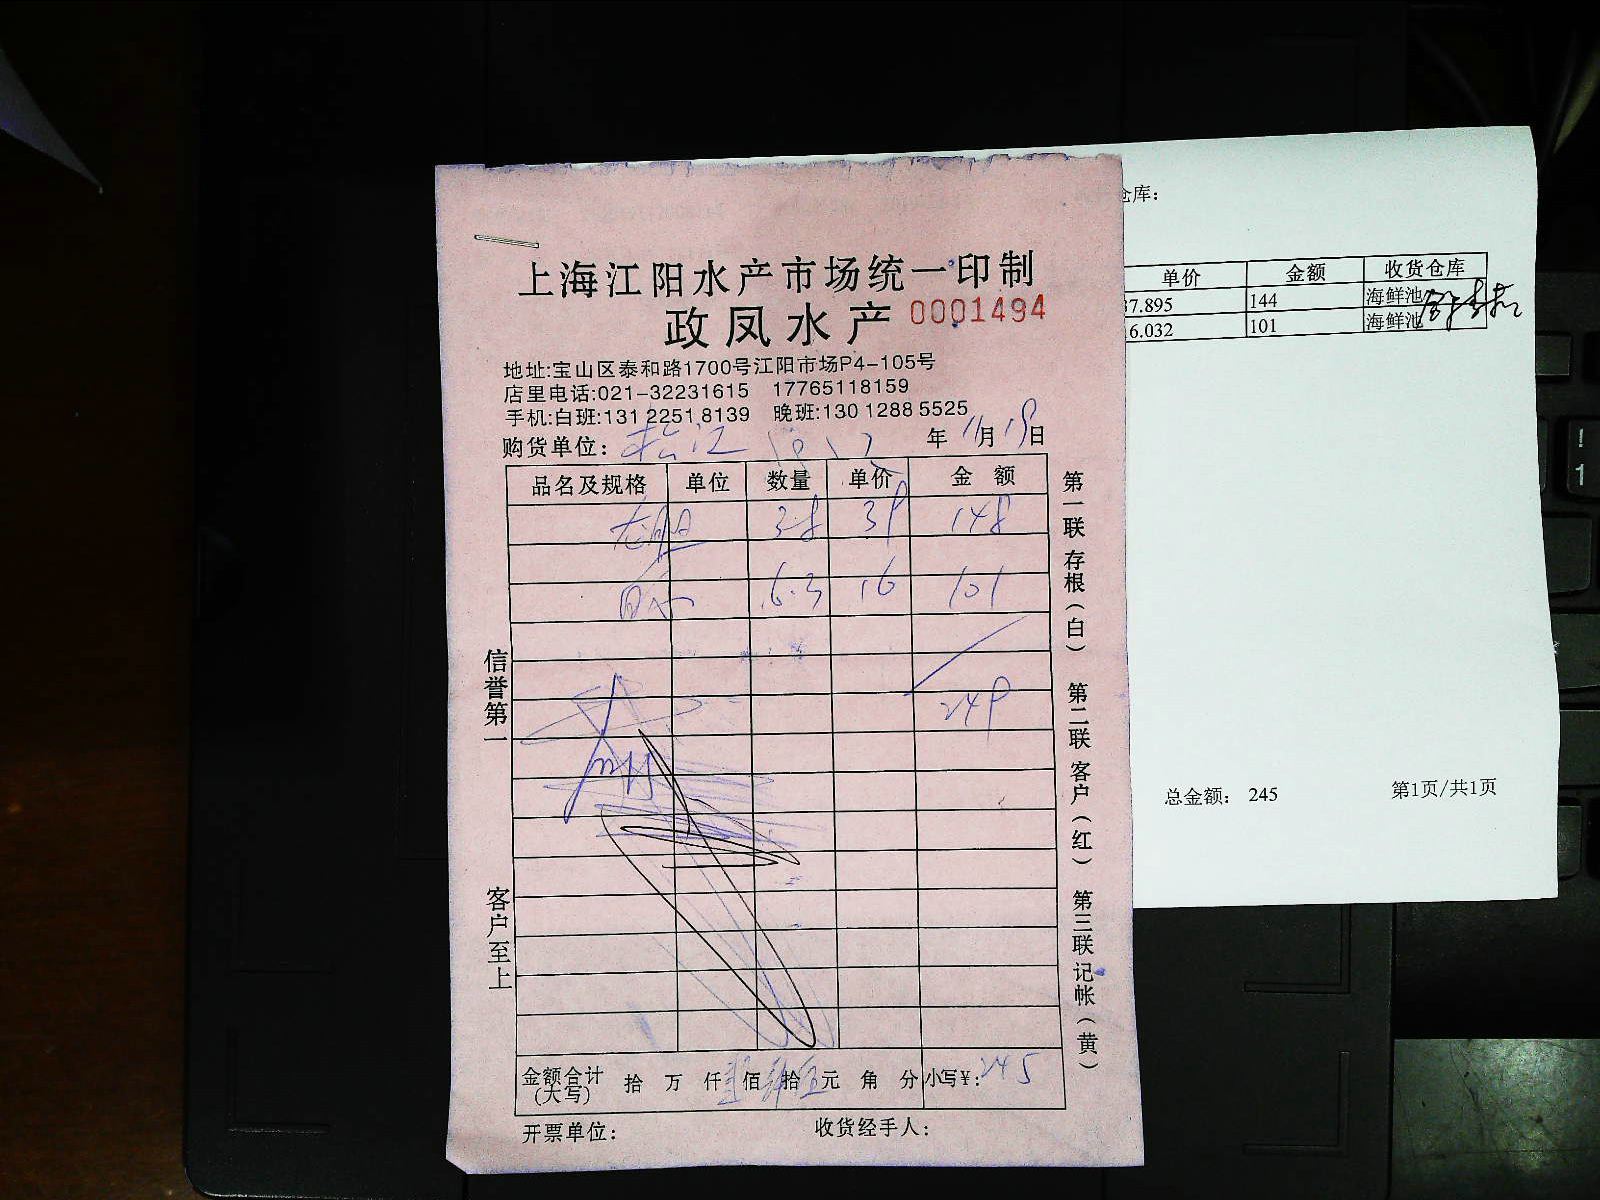 上海江阳水产市场统一印制
政凤水产 0001494
地址:宝山区泰和路1700号江阳市场P4-105号
店里电话:021-32231615 17765118159
手机:白班:131 2251 8139 晚班:130 1288 5525
购货单位: 松江 年 11月19日
品名及规格 单位 数量 单价 金额
龙胆 3.8 38 148
16 101
249
金额合计 拾 万 仟 贰佰 肆拾 伍元 角 分 小写¥: 245
(大写)
开票单位: 收货经手人:
信誉第一
客户至上
第一联 存根(白)
第二联 客户(红)
第三联 记帐(黄)
仓库:
单价 金额 收货仓库
37.895 144 海鲜池
16.032 101 海鲜池
总金额: 245 第1页/共1页